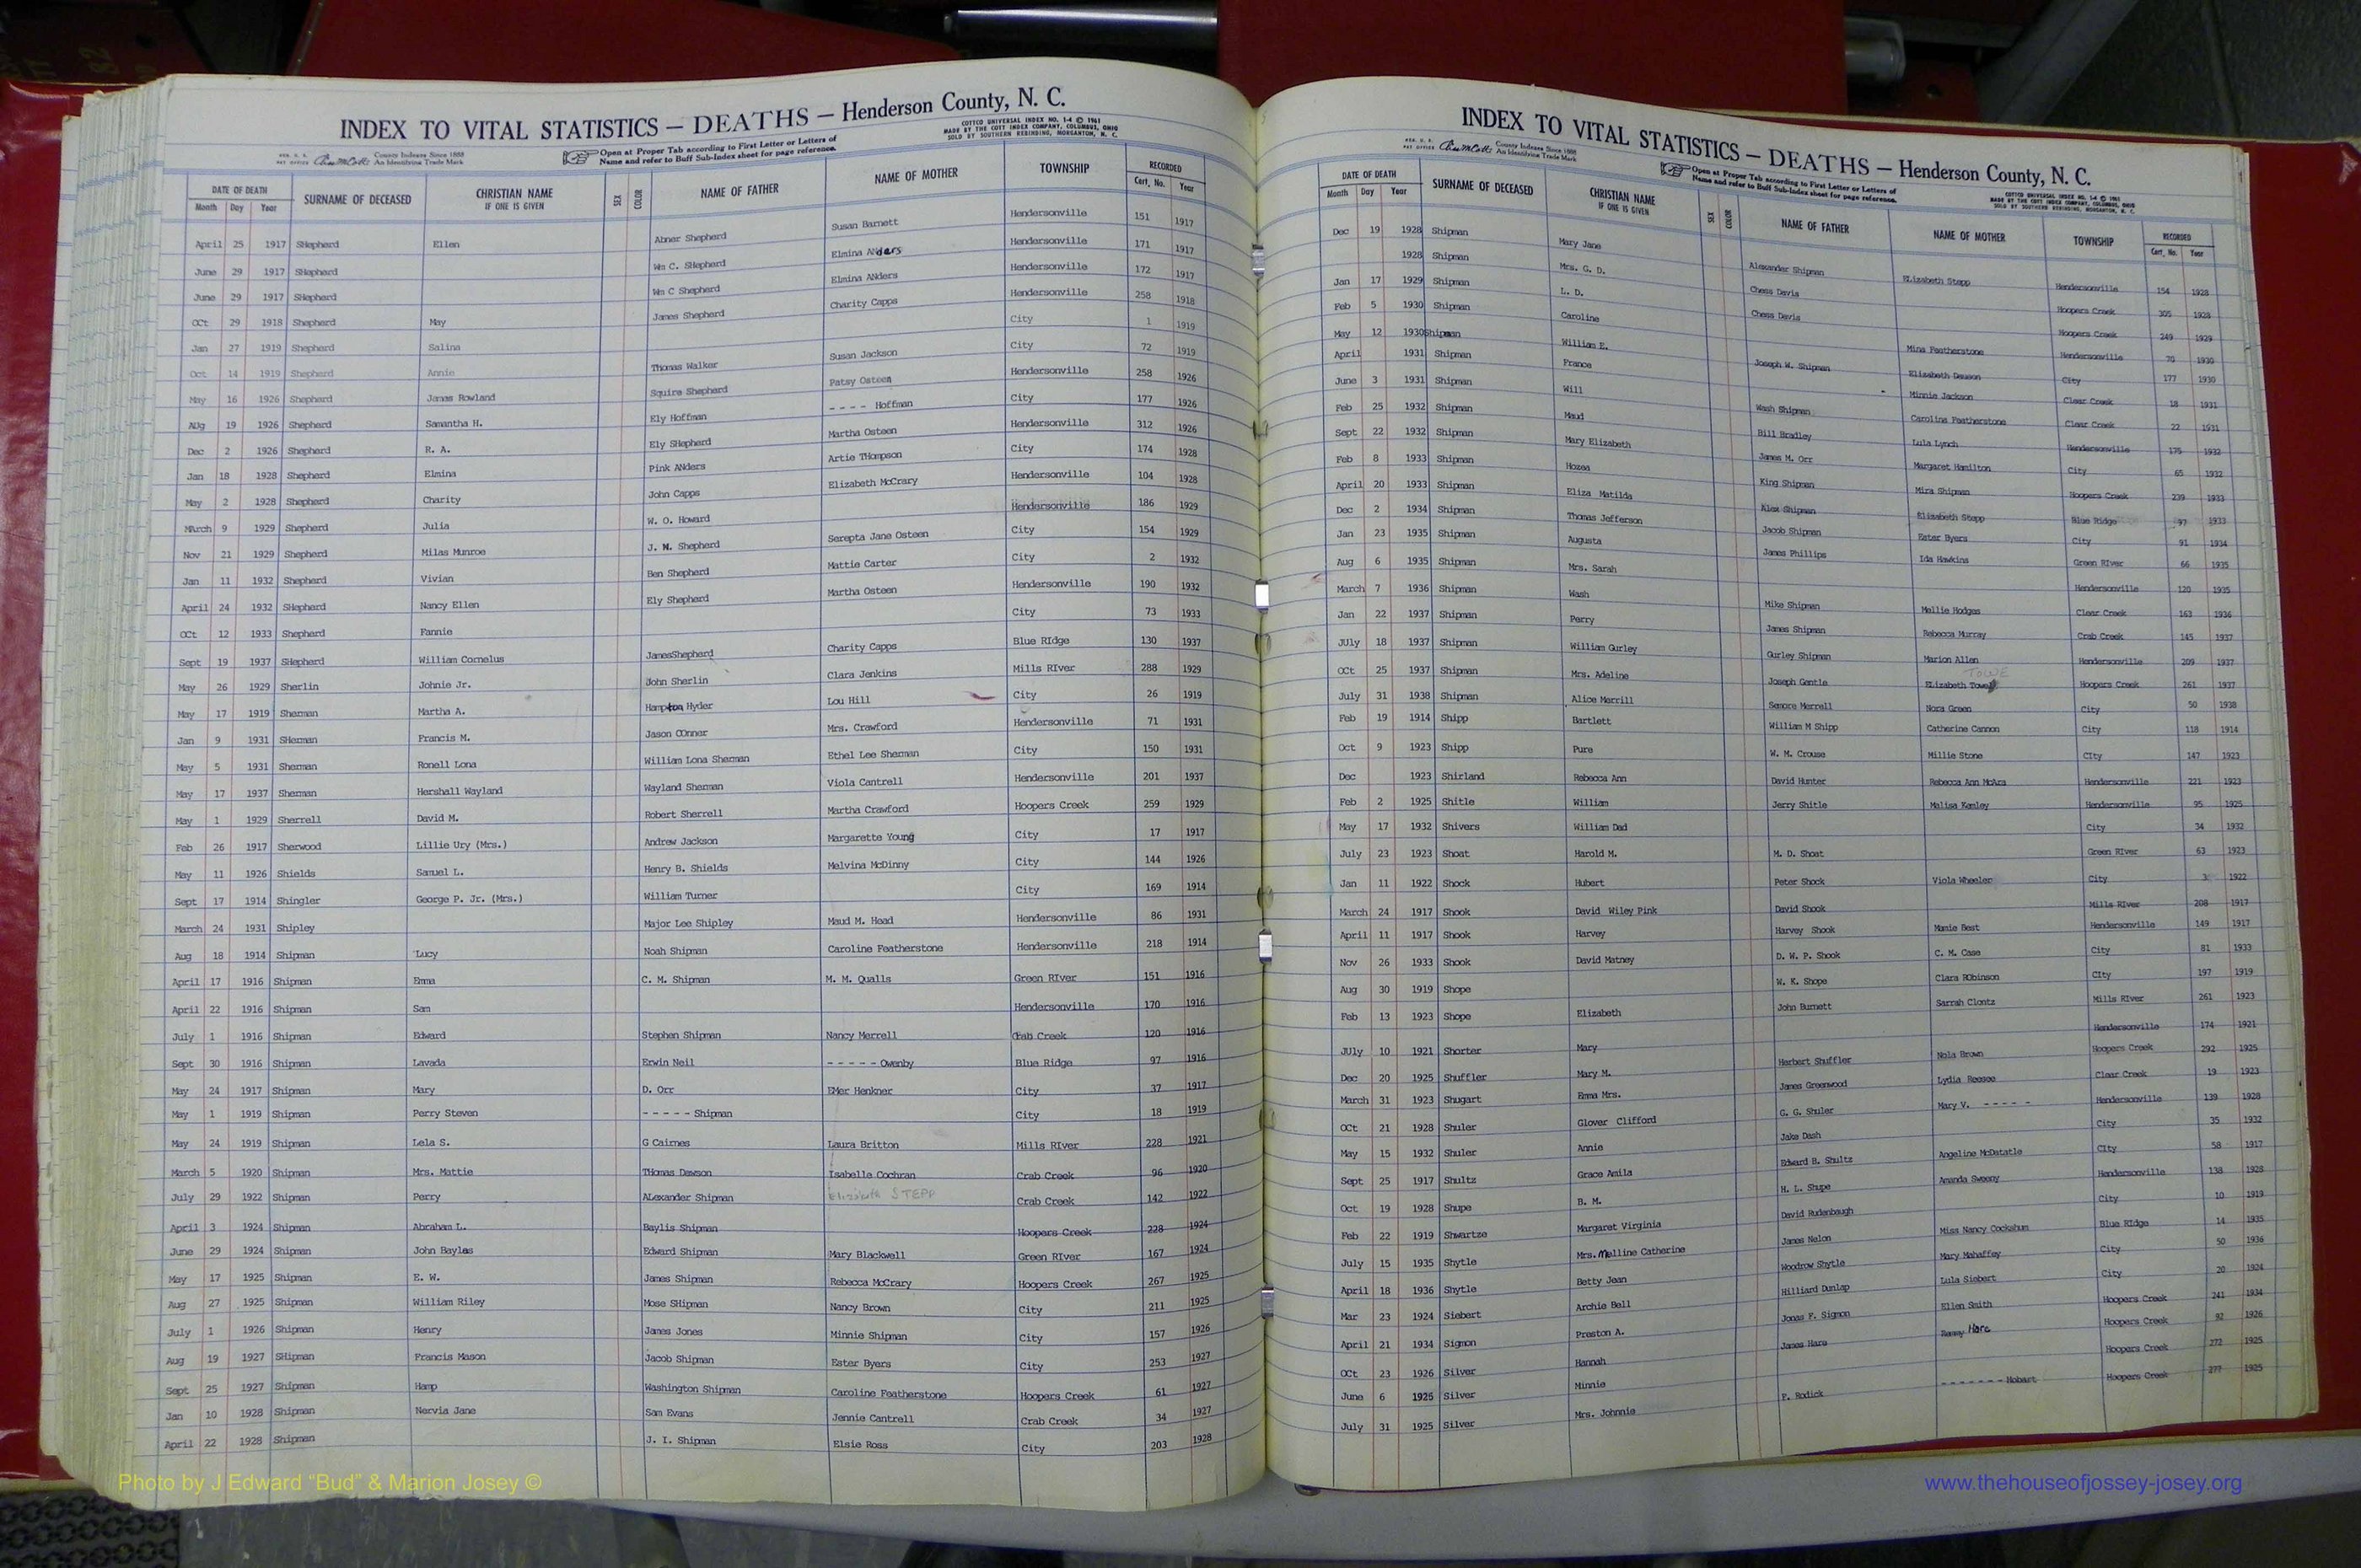 INDEX TO VITAL STATISTICS — DEATHS — Henderson County, N. C.
COTTCO UNIVERSAL INDEX NO. 1-4 © 1961
MADE BY THE COTT INDEX COMPANY, COLUMBUS, OHIO
SOLD BY SOUTHERN REBINDING, MORGANTON, N. C.
REG. U. S. PAT OFFICE County Indexes Since 1888 An Identifying Trade Mark
Open at Proper Tab according to First Letter or Letters of
Name and refer to Buff Sub-Index sheet for page reference.
DATE OF DEATH SURNAME OF DECEASED CHRISTIAN NAME IF ONE IS GIVEN SEX COLOR NAME OF FATHER NAME OF MOTHER TOWNSHIP RECORDED
Month Day Year Cert. No. Year
April 25 1917 SHepherd Ellen Abner Shepherd Susan Barnett Hendersonville 151 1917
June 29 1917 SHepherd Wm C. SHepherd Elmina ANders Hendersonville 171 1917
June 29 1917 SHepherd Wm C Shepherd Elmina ANders Hendersonville 172 1917
OCt 29 1918 Shepherd May James Shepherd Charity Capps Hendersonville 258 1918
Jan 27 1919 Shepherd Salina City 1 1919
Oct 14 1919 Shepherd Annie Thomas Walker Susan Jackson City 72 1919
May 16 1926 Shepherd James Rowland Squire Shepherd Patsy Osteen Hendersonville 258 1926
AUg 19 1926 Shepherd Samantha H. Ely Hoffman - - - - Hoffman City 177 1926
Dec 2 1926 Shepherd R. A. Ely SHepherd Martha Osteen Hendersonville 312 1926
Jan 18 1928 Shepherd Elmina Pink ANders Artie THompson City 174 1928
May 2 1928 Shepherd Charity John Capps Elizabeth McCrary Hendersonville 104 1928
MArch 9 1929 Shepherd Julia W. O. Howard Hendersonville 186 1929
Nov 21 1929 Shepherd Milas Munroe J. M. Shepherd Serepta Jane Osteen City 154 1929
Jan 11 1932 Shepherd Vivian Ben Shepherd Mattie Carter City 2 1932
April 24 1932 SHepherd Nancy Ellen Ely Shepherd Martha Osteen Hendersonville 190 1932
OCt 12 1933 Shepherd Fannie City 73 1933
Sept 19 1937 SHepherd William Cornelus JamesShepherd Charity Capps Blue RIdge 130 1937
May 26 1929 Sherlin Johnie Jr. John Sherlin Clara Jenkins Mills RIver 288 1929
May 17 1919 Sherman Martha A. Hampton Hyder Lou Hill City 26 1919
Jan 9 1931 SHerman Francis M. Jason COnner Mrs. Crawford Hendersonville 71 1931
May 5 1931 Sherman Ronell Lona William Lona Sherman Ethel Lee Sherman City 150 1931
May 17 1937 Sherman Hershall Wayland Wayland Sherman Viola Cantrell Hendersonville 201 1937
May 1 1929 Sherrell David M. Robert Sherrell Martha Crawford Hoopers Creek 259 1929
Feb 26 1917 Sherwood Lillie Ury (Mrs.) Andrew Jackson Margarette Young City 17 1917
May 11 1926 Shields Samuel L. Henry B. Shields Melvina McDinny City 144 1926
Sept 17 1914 Shingler George P. Jr. (Mrs.) William Turner City 169 1914
March 24 1931 Shipley Major Lee Shipley Maud M. Head Hendersonville 86 1931
Aug 18 1914 Shipman Lucy Noah Shipman Caroline Featherstone Hendersonville 218 1914
April 17 1916 Shipman Emma C. M. Shipman M. M. Qualls Green RIver 151 1916
April 22 1916 Shipman Sam Hendersonville 170 1916
July 1 1916 Shipman Edward Stephen Shipman Nancy Merrell Crab Creek 120 1916
Sept 30 1916 Shipman Lavada Erwin Neil - - - - - Owenby Blue Ridge 97 1916
May 24 1917 Shipman Mary D. Orr EMer Henkner City 37 1917
May 1 1919 Shipman Perry Steven - - - - - Shipman City 18 1919
May 24 1919 Shipman Lela S. G Cairnes Laura Britton Mills RIver 228 1921
March 5 1920 Shipman Mrs. Mattie THomas Dawson Isabelle Cochran Crab Creek 96 1920
July 29 1922 Shipman Perry ALexander Shipman Elizabeth STEPP Crab Creek 142 1922
April 3 1924 Shipman Abraham L. Baylis Shipman Hoopers Creek 228 1924
June 29 1924 Shipman John Bayles Edward Shipman Mary Blackwell Green RIver 167 1924
May 17 1925 Shipman E. W. James Shipman Rebecca McCrary Hoopers Creek 267 1925
Aug 27 1925 Shipman William Riley Mose SHipman Nancy Brown City 211 1925
July 1 1926 Shipman Henry James Jones Minnie Shipman City 157 1926
Aug 19 1927 SHipman Francis Mason Jacob Shipman Ester Byers City 253 1927
Sept 25 1927 Shipman Hamp Washington Shipman Caroline Featherstone Hoopers Creek 61 1927
Jan 10 1928 Shipman Nervia Jane Sam Evans Jennie Cantrell Crab Creek 34 1927
April 22 1928 Shipman J. I. Shipman Elsie Ross City 203 1928
Photo by J Edward “Bud” & Marion Josey ©
INDEX TO VITAL STATISTICS — DEATHS — Henderson County, N. C.
REG. U. S. PAT OFFICE County Indexes Since 1888 An Identifying Trade Mark
Open at Proper Tab according to First Letter or Letters of
Name and refer to Buff Sub-Index sheet for page reference.
COTTCO UNIVERSAL INDEX NO. 1-4 © 1961
MADE BY THE COTT INDEX COMPANY, COLUMBUS, OHIO
SOLD BY SOUTHERN REBINDING, MORGANTON, N. C.
DATE OF DEATH SURNAME OF DECEASED CHRISTIAN NAME IF ONE IS GIVEN SEX COLOR NAME OF FATHER NAME OF MOTHER TOWNSHIP RECORDED
Month Day Year Cert. No. Year
Dec 19 1928 Shipman Mary Jane Alexander Shipman ELizabeth Stepp Hendersonville 154 1928
1928 Shipman Mrs. G. D. Chess Davis Hoopers Creek 305 1928
Jan 17 1929 Shipman L. D. Chess Davis Hoopers Creek 249 1929
Feb 5 1930 Shipman Caroline Mina Featherstone Hendersonville 70 1930
May 12 1930 Shipman William E. Joseph W. Shipman Elizabeth Dawson City 177 1930
April 1931 Shipman France Minnie Jackson Clear Creek 18 1931
June 3 1931 Shipman Will Wash Shipman Caroline Featherstone Clear Creek 22 1931
Feb 25 1932 Shipman Maud Bill Bradley Lula Lynch Hendersonville 175 1932
Sept 22 1932 Shipman Mary Elizabeth James M. Orr Margaret Hamilton City 65 1932
Feb 8 1933 Shipman Hozea King Shipman Mira Shipman Hoopers Creek 239 1933
April 20 1933 Shipman Eliza Matilda Alex Shipman Elizabeth Stepp Blue Ridge 97 1933
Dec 2 1934 Shipman Thomas Jefferson Jacob Shipman Ester Byers City 91 1934
Jan 23 1935 Shipman Augusta James Phillips Ida Hawkins Green RIver 66 1935
Aug 6 1935 Shipman Mrs. Sarah Hendersonville 120 1935
March 7 1936 Shipman Wash Mike Shipman Mellie Hodges Clear Creek 163 1936
Jan 22 1937 Shipman Perry James Shipman Rebecca Murray Crab Creek 145 1937
JUly 18 1937 Shipman William Gurley Gurley Shipman Marion Allen Hendersonville 209 1937
TOWE
OCt 25 1937 Shipman Mrs. Adeline Joseph Gentle ELizabeth Towe Hoopers Creek 261 1937
July 31 1938 Shipman Alice Merrill Semore Merrell Nora Green City 50 1938
Feb 19 1914 Shipp Bartlett William M Shipp Catherine Cannon City 118 1914
Oct 9 1923 Shipp Pure W. M. Crouse Millie Stone CIty 147 1923
Dec 1923 Shirland Rebecca Ann David Hunter Rebecca Ann McAra Hendersonville 221 1923
Feb 2 1925 Shitle William Jerry Shitle Malisa Kanley Hendersonville 95 1925
May 17 1932 Shivers William Dad City 34 1932
July 23 1923 Shoat Harold M. M. D. Shoat Green RIver 63 1923
Jan 11 1922 Shock Hubert Peter Shock Viola Wheeler City 3 1922
March 24 1917 Shook David Wiley Pink David Shook Mills RIver 208 1917
April 11 1917 Shook Harvey Harvey Shook Mamie Best Hendersonville 149 1917
Nov 26 1933 Shook David Matney D. W. P. Shook C. M. Case City 81 1933
Aug 30 1919 Shope W. K. Shope Clara RObinson CIty 197 1919
Feb 13 1923 Shope Elizabeth John Burnett Sarrah Clontz Mills RIver 261 1923
JUly 10 1921 Shorter Mary Hendersonville 174 1921
Dec 20 1925 Shuffler Mary M. Herbert Shuffler Nola Brown Hoopers Creek 292 1925
March 31 1923 Shugart Emma Mrs. James Greenwood Lydia Reesee Clear Creek 19 1923
OCt 21 1928 Shuler Glover Clifford G. G. Shuler Mary V. - - - - - Hendersonville 139 1928
May 15 1932 Shuler Annie Jake Dash City 35 1932
Sept 25 1917 Shultz Grace Amila Edward B. Shultz Angeline McDatatle CIty 58 1917
Oct 19 1928 Shupe B. M. H. L. Shupe Amanda Sweeny Hendersonville 138 1928
Feb 22 1919 Shwartze Margaret Virginia David Rudenbaugh City 10 1919
July 15 1935 Shytle Mrs. Melline Catherine James Nelon Miss Nancy Cockshum Blue RIdge 14 1935
April 18 1936 Shytle Betty Jean Woodrow Shytle Mary Mahaffey City 50 1936
Mar 23 1924 Siebert Archie Bell Hilliard Dunlap Lula Siebert City 20 1924
April 21 1934 Signon Preston A. Jonas F. Signon Ellen Smith Hoopers Creek 241 1934
OCt 23 1926 Silver Hannah James Hare Hare Hoopers Creek 92 1926
June 6 1925 Silver Minnie Hoopers Creek 272 1925
July 31 1925 Silver Mrs. Johnnie F. Rodick - - - - - - - Hobart Hoopers Creek 277 1925
www.thehouseofjossey-josey.org